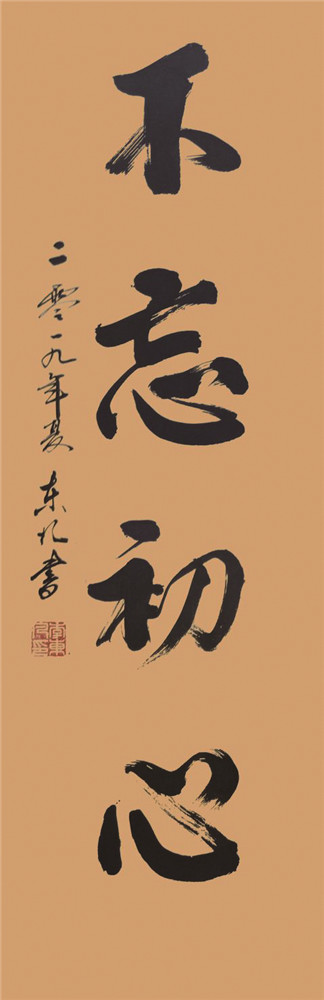 不忘初心
二零一九年夏 东凡书